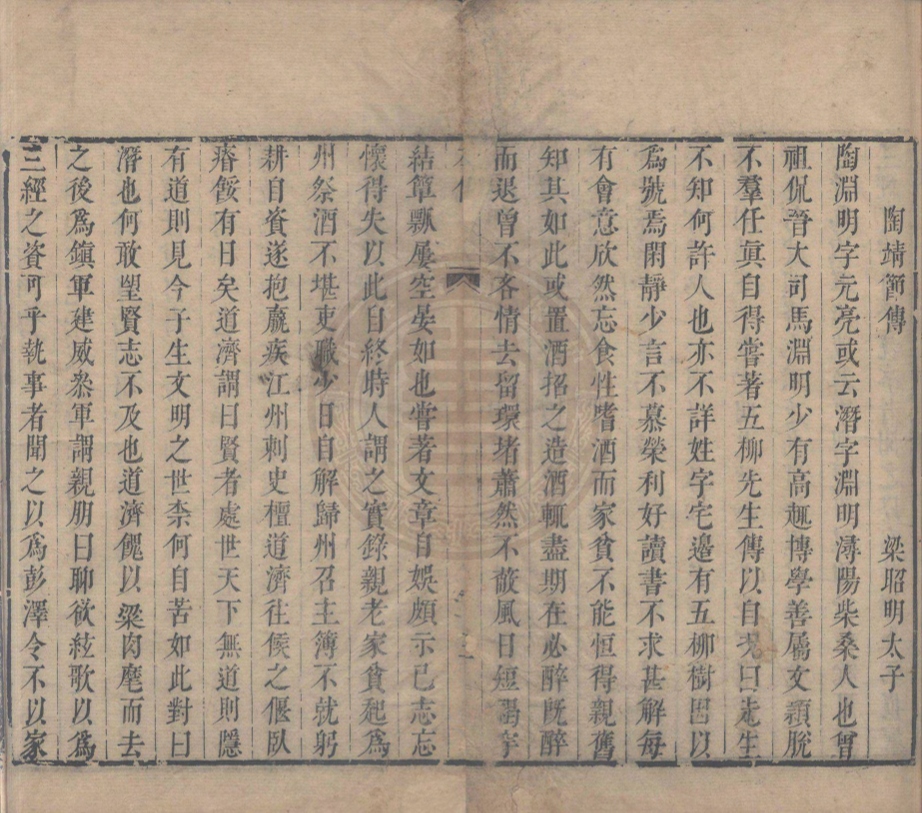 陶靖節傳 梁昭明太子
陶淵明字元亮或云潛字淵明潯陽柴桑人也曾
祖侃晉大司馬淵明少有高趣博學善屬文穎脫
不羣任眞自得嘗著五柳先生傳以自況曰先生
不知何許人也亦不詳姓字宅邊有五柳樹因以
爲號焉閑靜少言不慕榮利好讀書不求甚解每
有會意欣然忘食性嗜酒而家貧不能恒得親舊
知其如此或置酒招之造酒輒盡期在必醉旣醉
而退曾不吝情去留環堵蕭然不蔽風日短褐穿
結簞瓢屢空晏如也嘗著文章自娛頗示已志忘
懷得失以此自終時人謂之實錄親老家貧起爲
州祭酒不堪吏職少日自解歸州召主簿不就躬
耕自資遂抱羸疾江州刺史檀道濟往候之偃臥
瘠餒有日矣道濟謂曰賢者處世天下無道則隱
有道則見今子生文明之世柰何自苦如此對曰
潛也何敢望賢志不及也道濟餽以粱肉麾而去
之後爲鎭軍建威叅軍謂親朋曰聊欲絃歌以爲
三徑之資可乎執事者聞之以爲彭澤令不以家